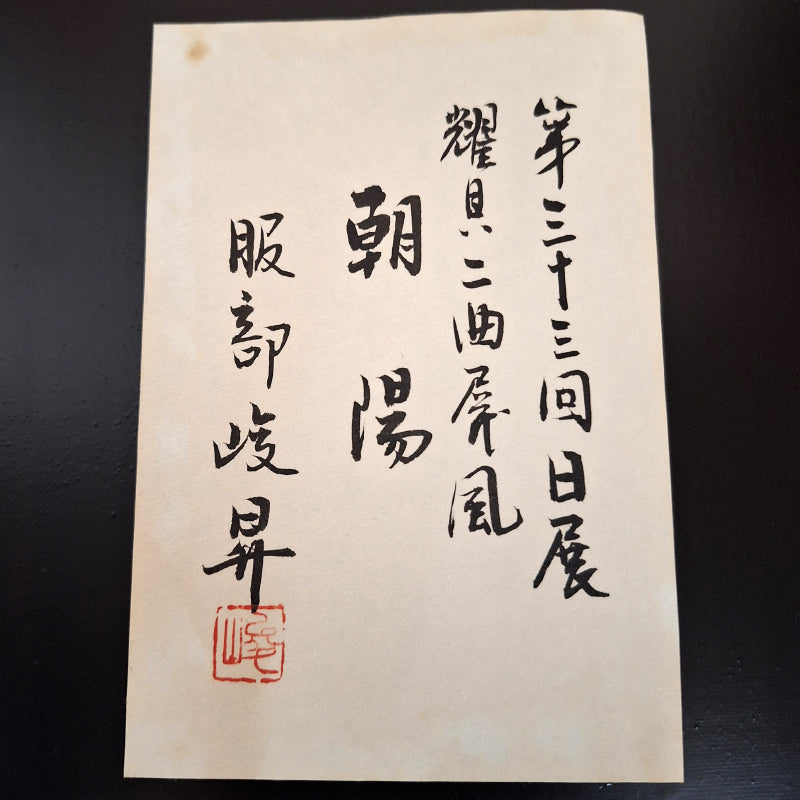 第三十三回日展
耀貝二曲屏風
朝陽
服部峻昇
峻